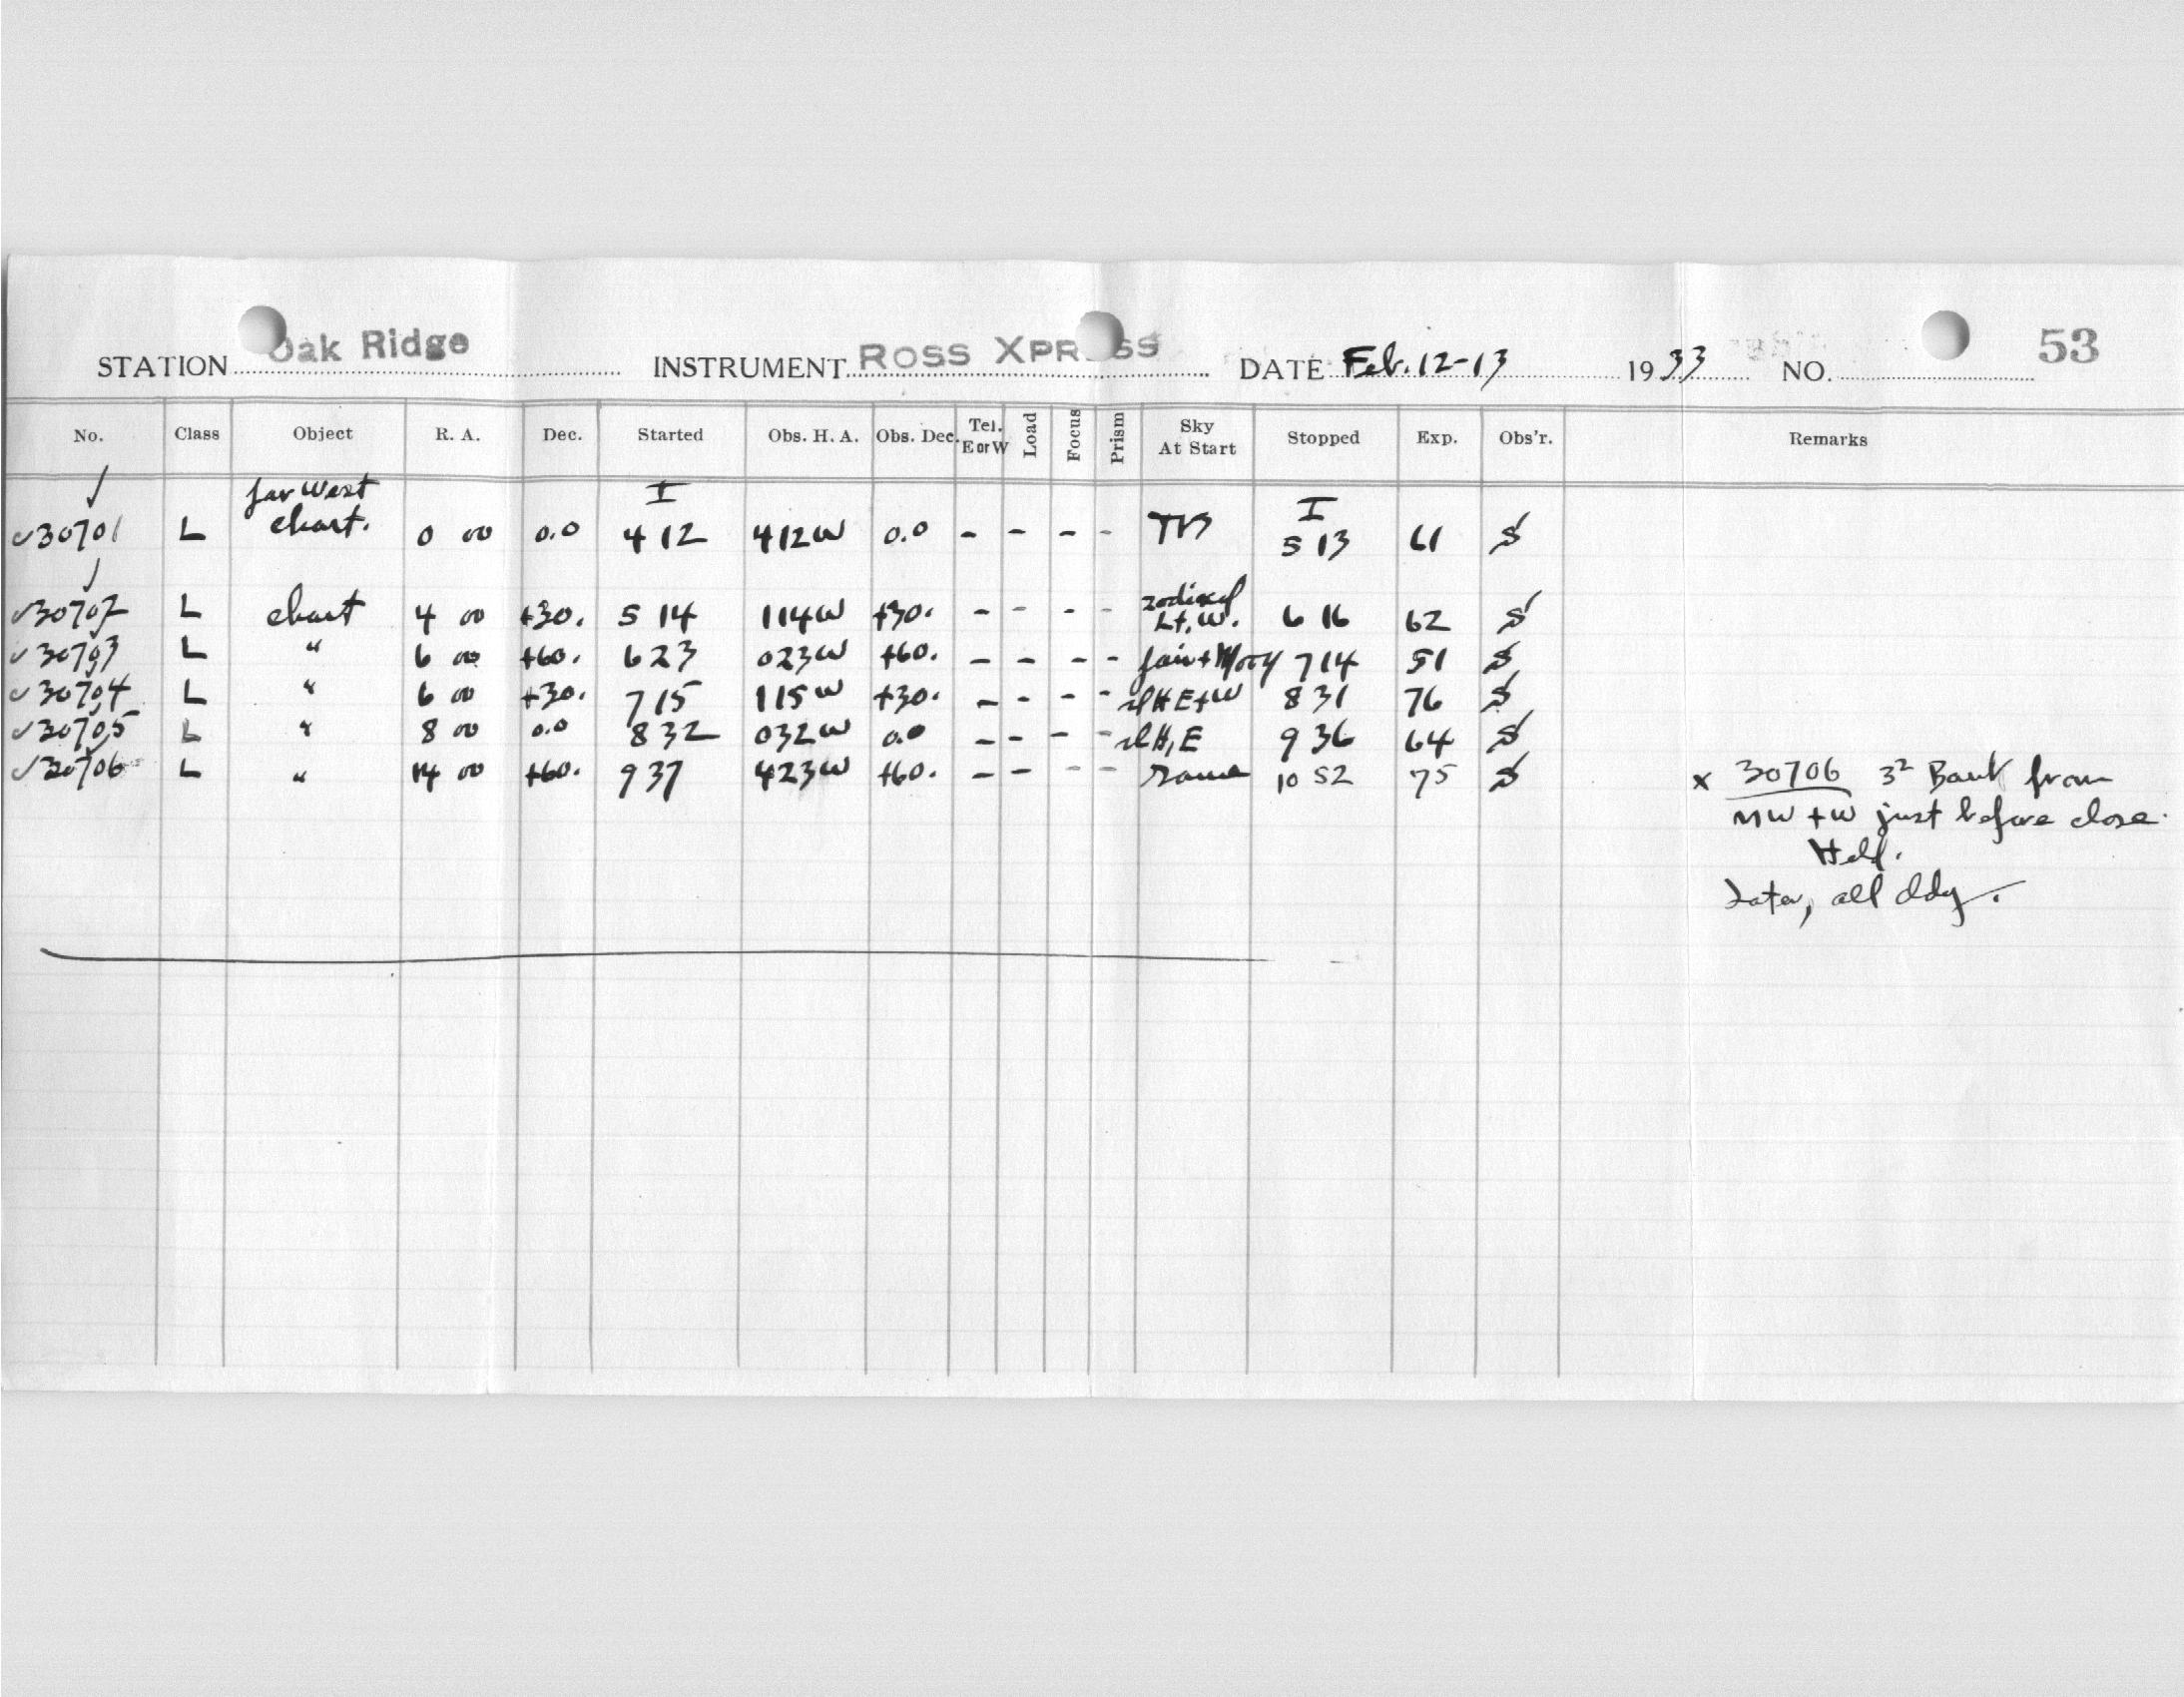 STATION Oak Ridge INSTRUMENT ROSS XPRESS DATE Feb. 12-13 1933 NO. 53
No. Class Object R. A. Dec. Started Obs. H. A. Obs. Dec. Tel. E or W Load Focus Prism Sky At Start Stopped Exp. Obs'r. Remarks
far West I I
✓30701 L chart. 0 00 0.0 4 12 412W 0.0 - - - - 5 13 61 S
zodiacal
✓30702 L chart 4 00 +30. 5 14 114W +30. - - - - Lt, W. 6 16 62 S
✓30703 L " 6 00 +60. 6 23 023W +60. - - - - fair + 7 14 51 S
✓30704 L " 6 00 +30. 7 15 115W +30. - - - - slH E+W 8 31 76 S
✓30705 L " 8 00 0.0 8 32 032W 0.0 - - - - slH, E 9 36 64 S
✓30706 L " 14 00 +60. 9 37 423W +60. - - - - same 10 52 75 S x 30706 3² Bank from
NW + W just before close.
Held.
Later, all cldy.